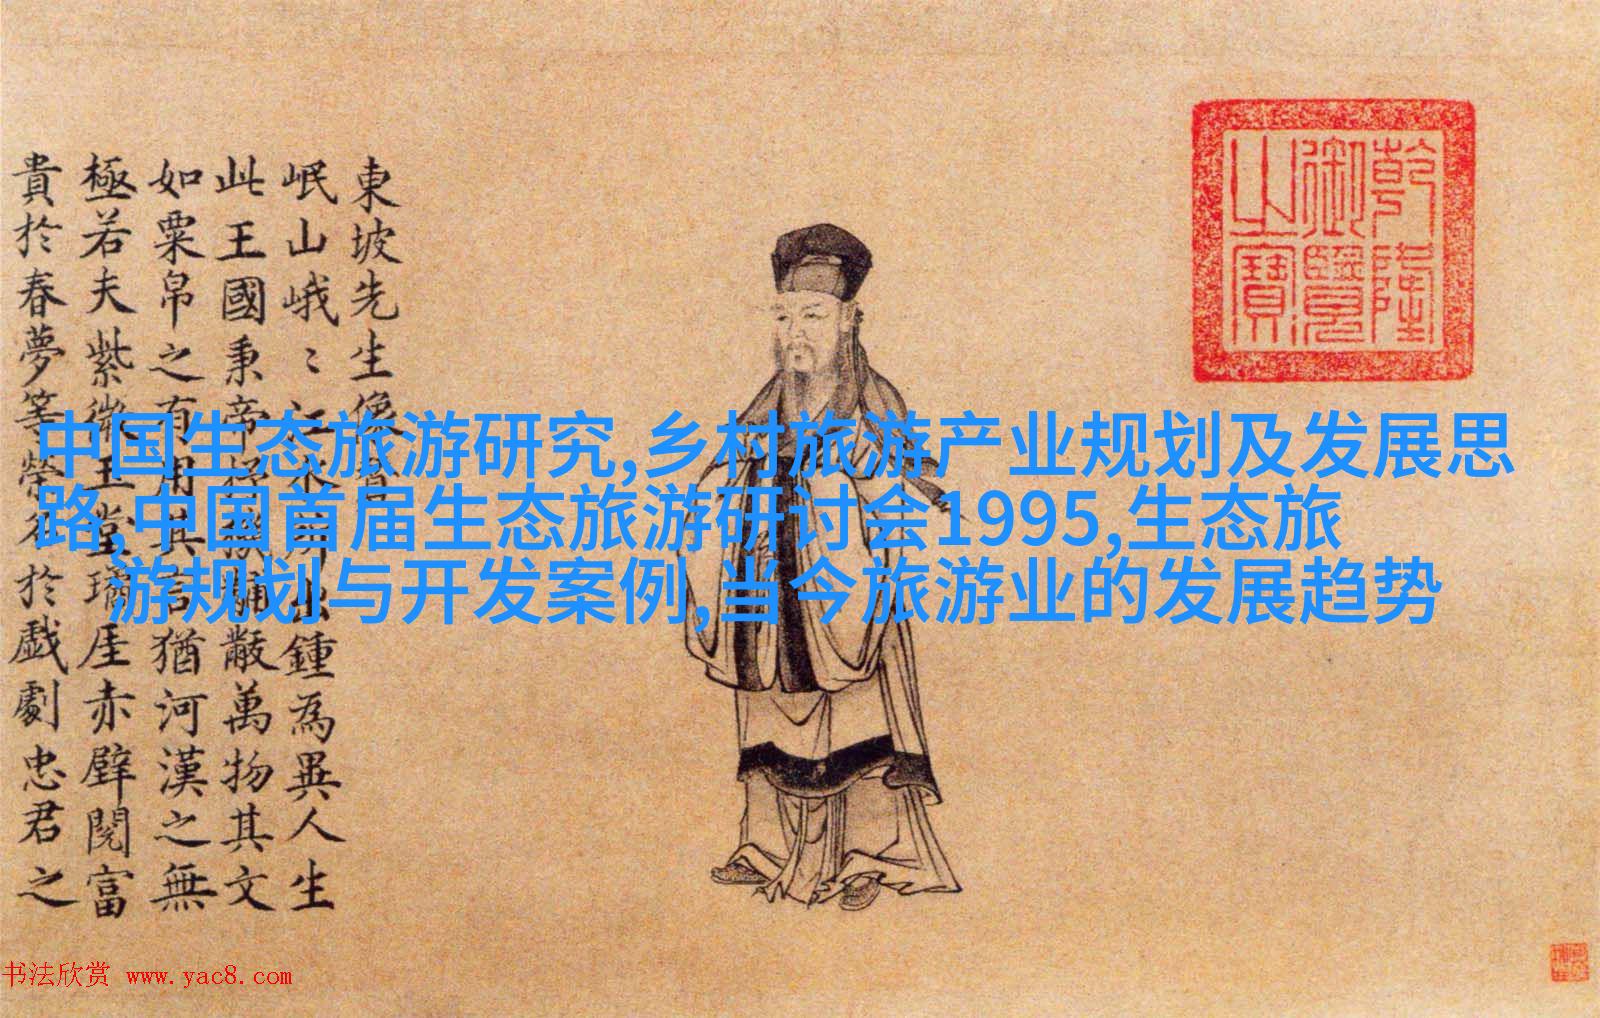 乾隆
御覽
之寶
東坡先生像
岷山峨〻江水所出鍾為異人生
此王國秉帝黼黻萬物其文
如粟帛之有用其言猶河漢之無
極若夫紫微玉堂璚厓赤壁閱富
貴於春夢等榮名於戲劇忠君之
中国生态旅游研究,乡村旅游产业规划及发展思
路,中国首届生态旅游研讨会1995,生态旅
游规划与开发案例,当今旅游业的发展趋势
书法欣赏 www.yac8.com